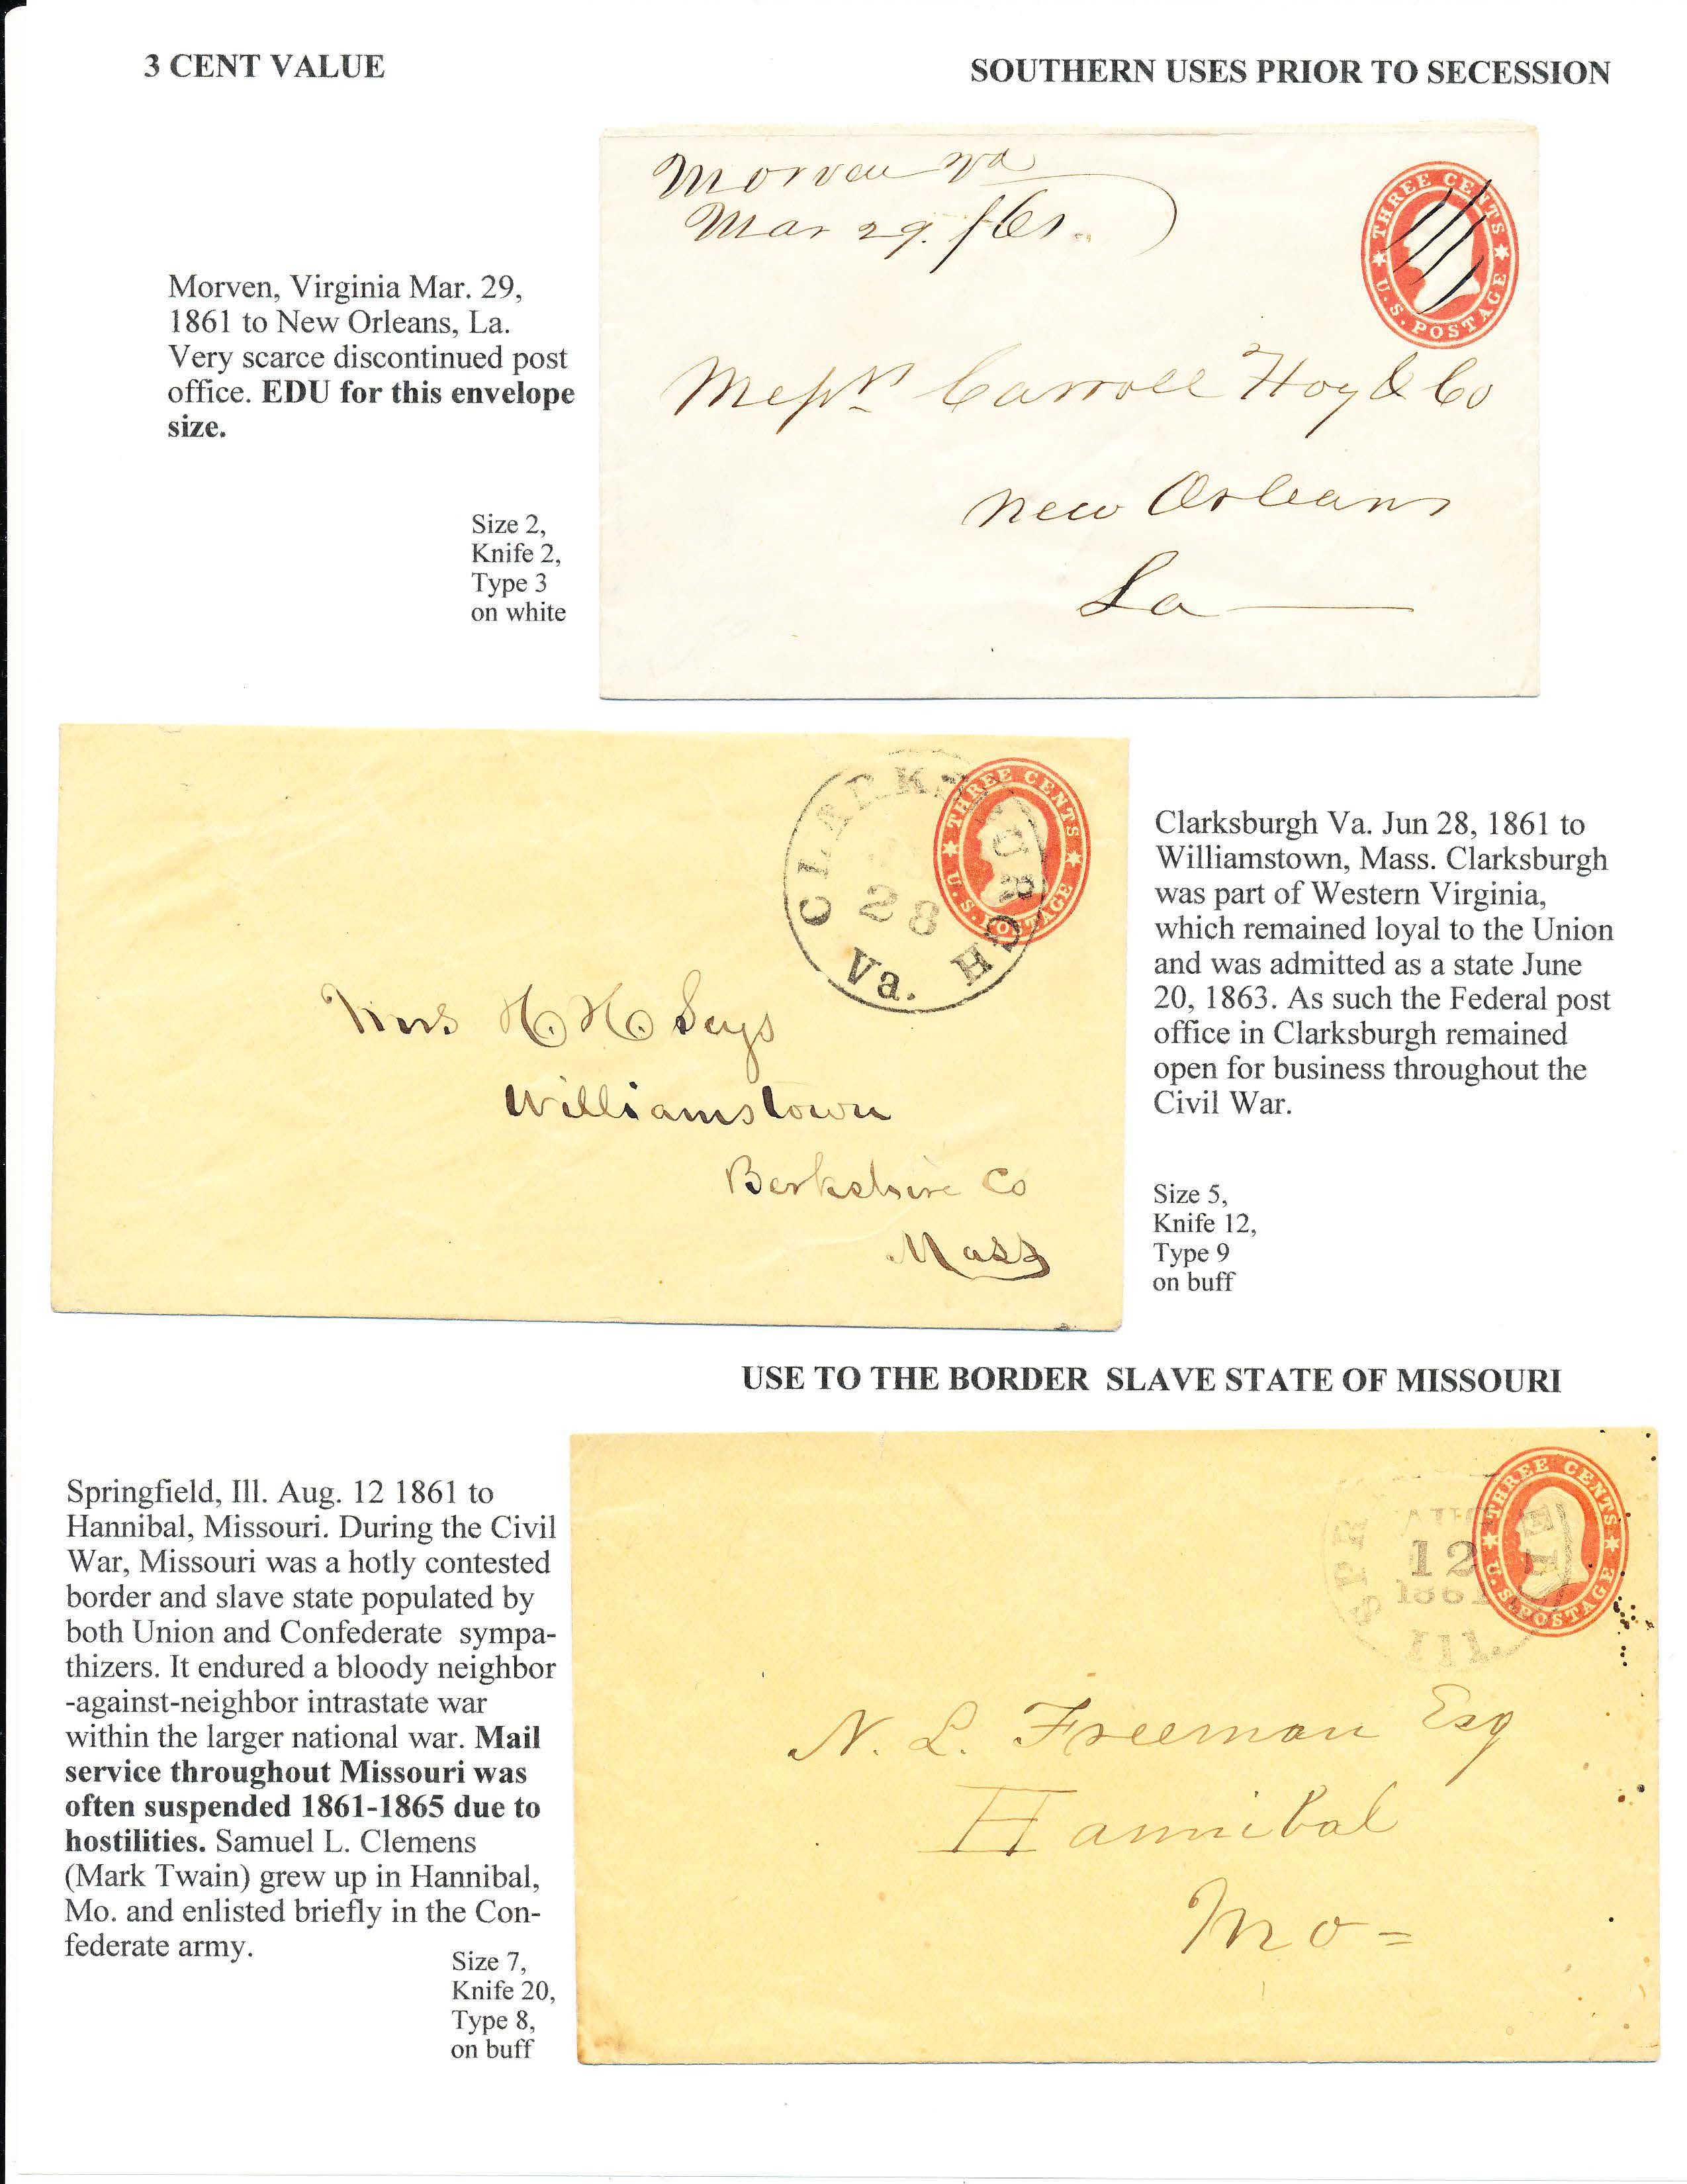 3 CENT VALUE
SOUTHERN USES PRIOR TO SECESSION
Morven Va
Mar 29. /61.
THREE CENTS
U.S. POSTAGE
Messrs Carroll Hoy & Co
New Orleans
La
Morven, Virginia Mar. 29,
1861 to New Orleans, La.
Very scarce discontinued post
office. EDU for this envelope
size.
Size 2,
Knife 2,
Type 3
on white
CLARKSBURGH
28
Va.
THREE CENTS
U.S. POSTAGE
Mrs H. H. Says
Williamstown
Berkshire Co
Mass
Clarksburgh Va. Jun 28, 1861 to
Williamstown, Mass. Clarksburgh
was part of Western Virginia,
which remained loyal to the Union
and was admitted as a state June
20, 1863. As such the Federal post
office in Clarksburgh remained
open for business throughout the
Civil War.
Size 5,
Knife 12,
Type 9
on buff
USE TO THE BORDER  SLAVE STATE OF MISSOURI
Springfield, Ill. Aug. 12 1861 to
Hannibal, Missouri. During the Civil
War, Missouri was a hotly contested
border and slave state populated by
both Union and Confederate  sympa-
thizers. It endured a bloody neighbor
-against-neighbor intrastate war
within the larger national war. Mail
service throughout Missouri was
often suspended 1861-1865 due to
hostilities. Samuel L. Clemens
(Mark Twain) grew up in Hannibal,
Mo. and enlisted briefly in the Con-
federate army.
Size 7,
Knife 20,
Type 8,
on buff
AUG
12
1861
Ill.
THREE CENTS
U.S. POSTAGE
N. L. Freeman Esq
Hannibal
Mo =